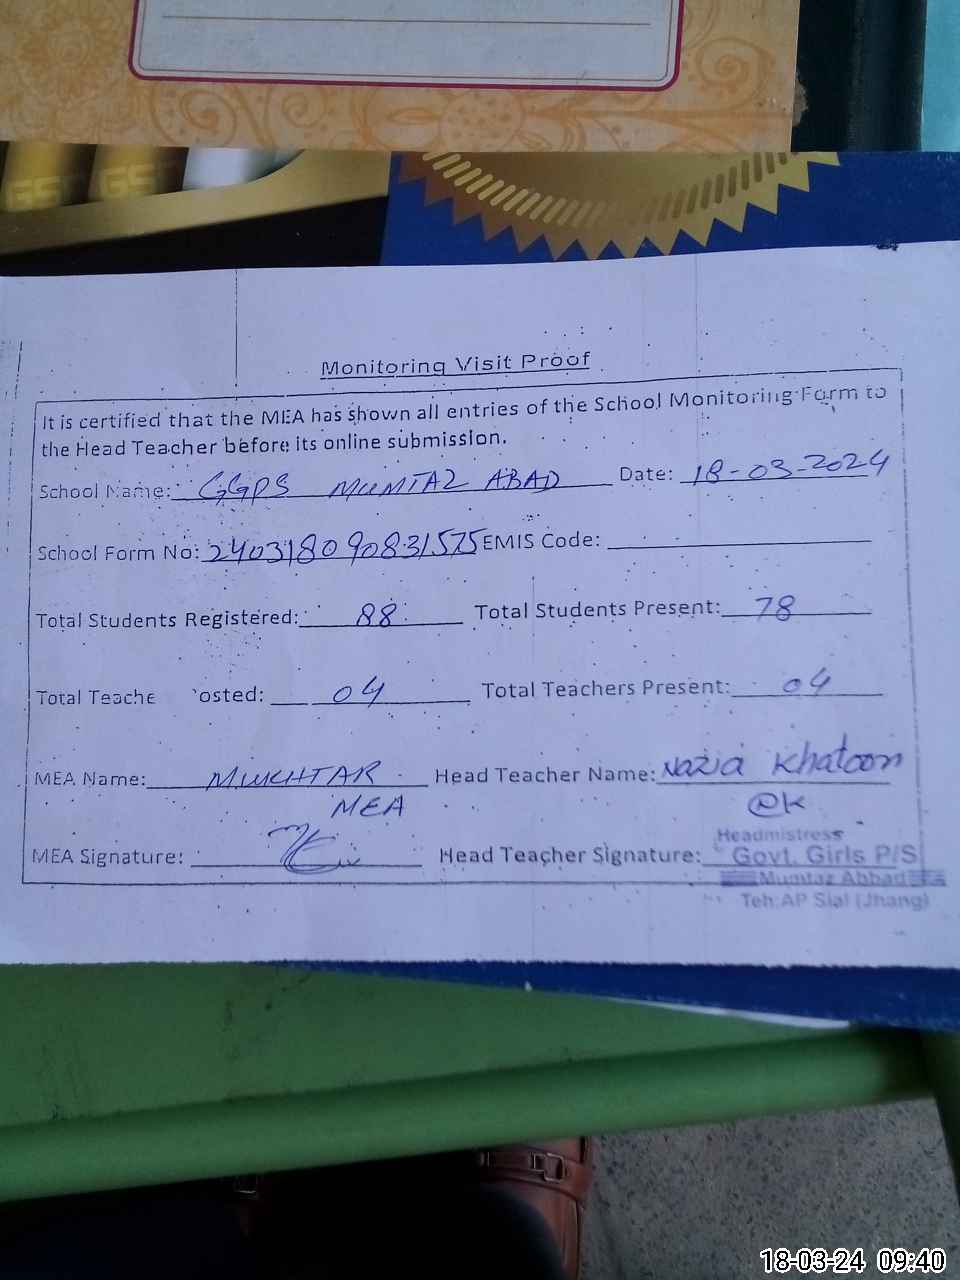 Monitoring Visit Proof
It is certified that the MEA has shown all entries of the School Monitoring Form to
the Head Teacher before its online submission.
School Name: GGPS MUMTAZ ABAD Date: 18-03-2024
School Form No: 240318090831575 EMIS Code:
Total Students Registered: 88 Total Students Present: 78
Total Teache osted: 04 Total Teachers Present: 04
MEA Name: MUKHTAR Head Teacher Name: Nazia Khatoon
MEA
MEA Signature: Head Teacher Signature:
Headmistress
Govt. Girls P/S
Mumtaz Abbad
Teh: AP Sial (Jhang)
18-03-24 09:40